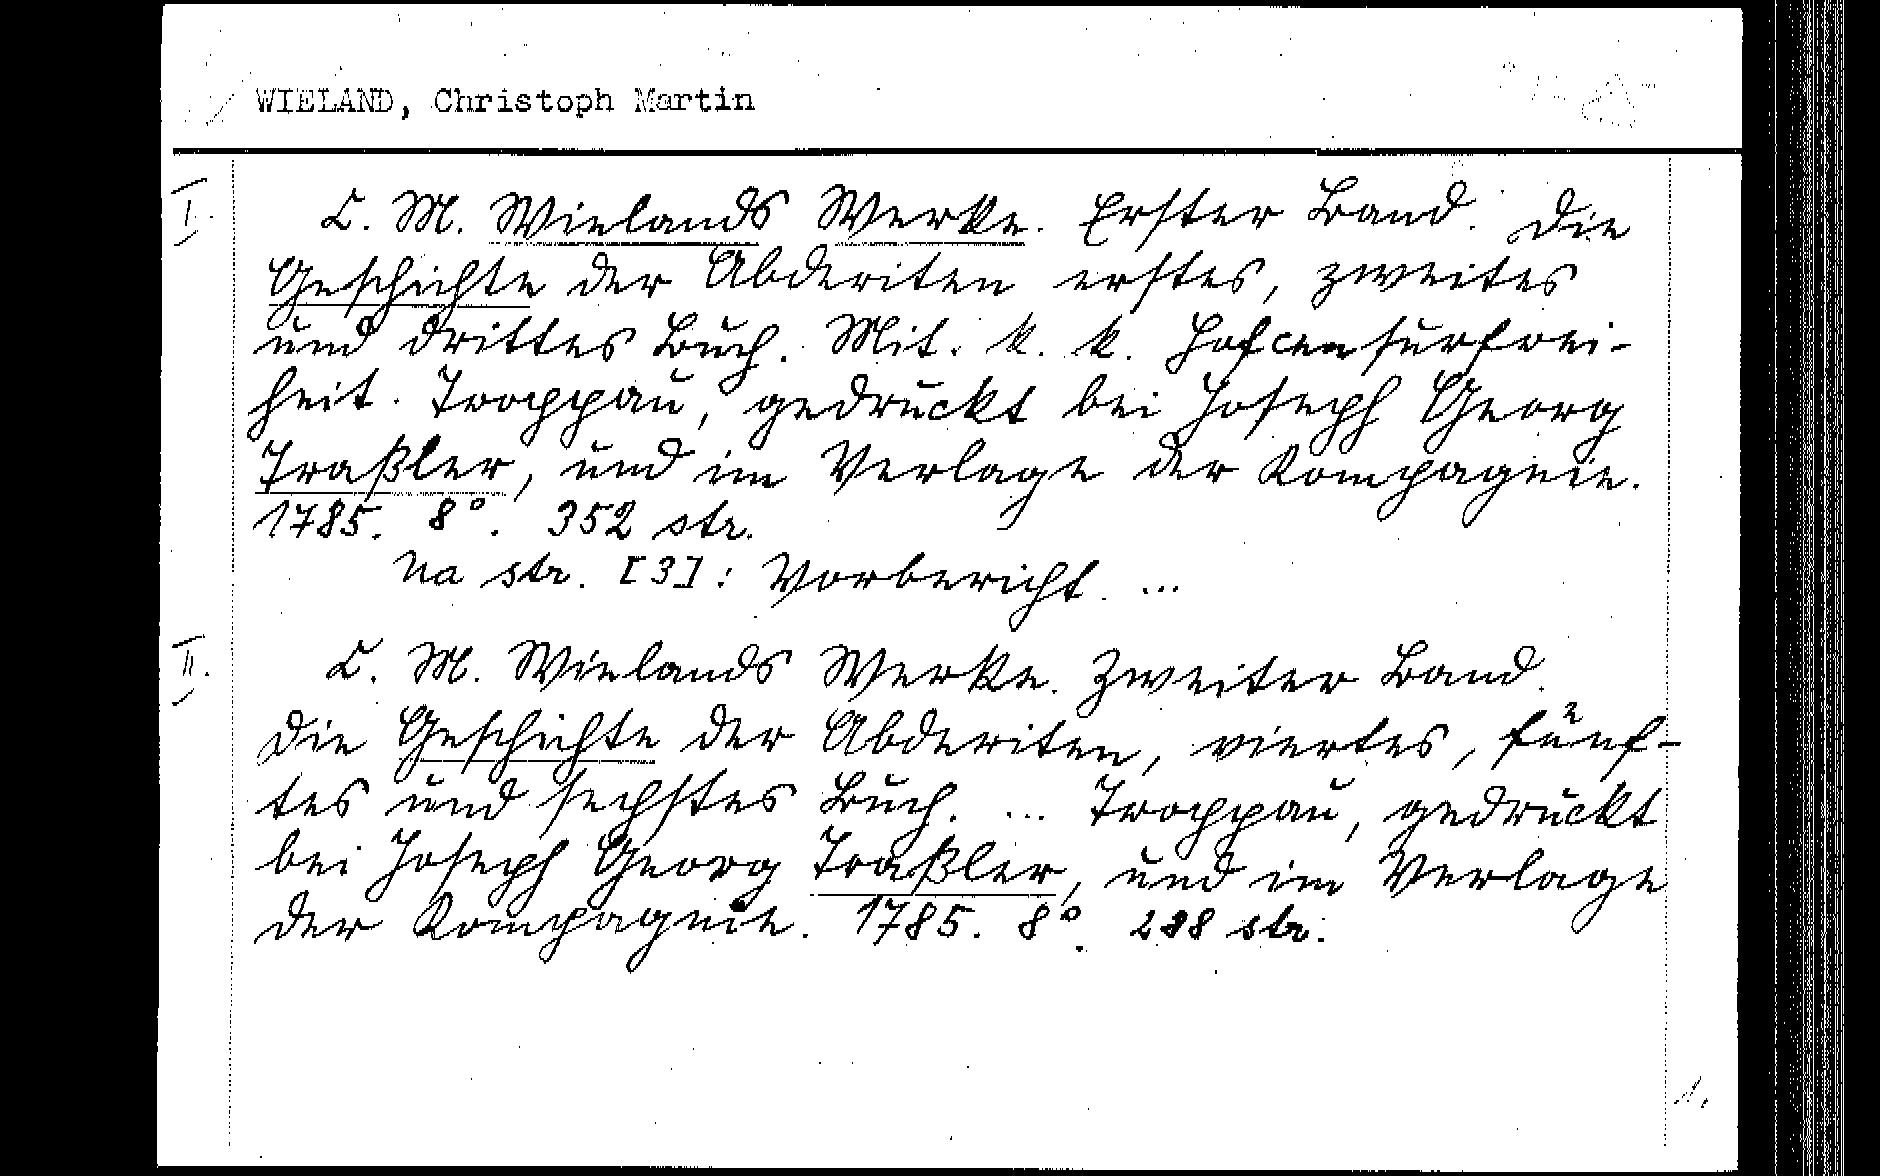 WIELAND, Christoph Martin
I. C. M. Wielands Werke. Erster Band. Die
Geschichte der Abderiten erstes, zweites
und drittes Buch. Mit k. k. Hofcensurfrei-
heit. Troppau, gedruckt bei Joseph Georg
Traßler, und im Verlage der Kompagnie.
1785. 8°. 352 str.
Na str. [3]: Vorbericht ...
II. C. M. Wielands Werke. Zweiter Band.
Die Geschichte der Abderiten, viertes, fünf-
tes und sechstes Buch. ... Troppau, gedruckt
bei Joseph Georg Traßler, und im Verlage
der Kompagnie. 1785. 8°. 288 str.
1.